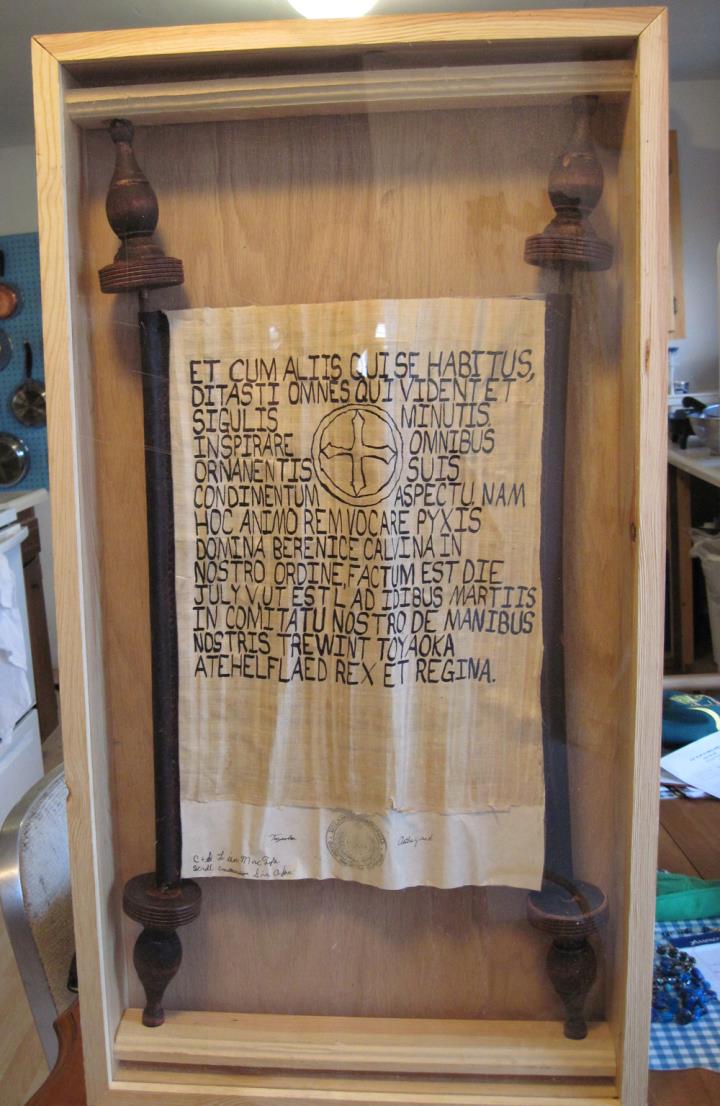 ET CUM ALIIS QUI SE HABITUS,
DITASTI OMNES QUI VIDENT ET
SIGULIS MINUTIS.
INSPIRARE OMNIBUS
ORNANENTIS SUIS
CONDIMENTUM ASPECTU. NAM
HOC ANIMO REM VOCARE PYXIS
DOMINA BERENICE CALVINA IN
NOSTRO ORDINE, FACTUM EST DIE
JULY.V.UT EST L AD IDIBUS MARTIIS
IN COMITATU NOSTRO DE MANIBUS
NOSTRIS TREWINT TOYAOKA
ATEHELFLAED REX ET REGINA.